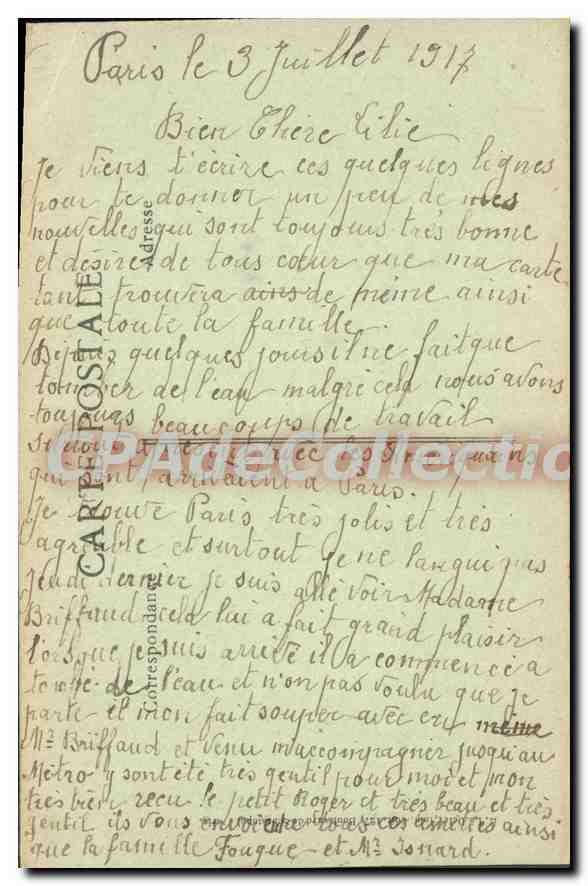 Paris le 3 Juillet 1917
Bien Chère Lilie
Je viens t'écrire ces quelques lignes
pour te donner un peu de mes
nouvelles qui sont toujours très bonne
et désire de tous cœur que ma carte
tant trouvera ains de même ainsi
que toute la famille.
Depuis quelques jours il ne fait que
tomber de l'eau malgré cela nous avons
toujours beaucoups de travail
surtout avec les
qui sont arrivaient à Paris.
Je trouve Paris très jolis et très
agréable et surtout je ne langui pas
Jeudi dernier je suis allé voir Madame
Briffaud cela lui a fait grand plaisir
lorsque je suis arrivé il a commencé a
tombé de l'eau et n'on pas voulu que je
parte il mon fait souper avec eux même
Mr Briffaud et venu m'accompagner jusqu'au
Métro y sont été très gentil pour moi et mon
très bien reçu le petit Roger et très beau et très
gentil ils vous envoient tous ces amitiés ainsi
que la famille Fouque et Mr Isnard.
CARTE POSTALE
Correspondance
Adresse
CPAdeCollection.com